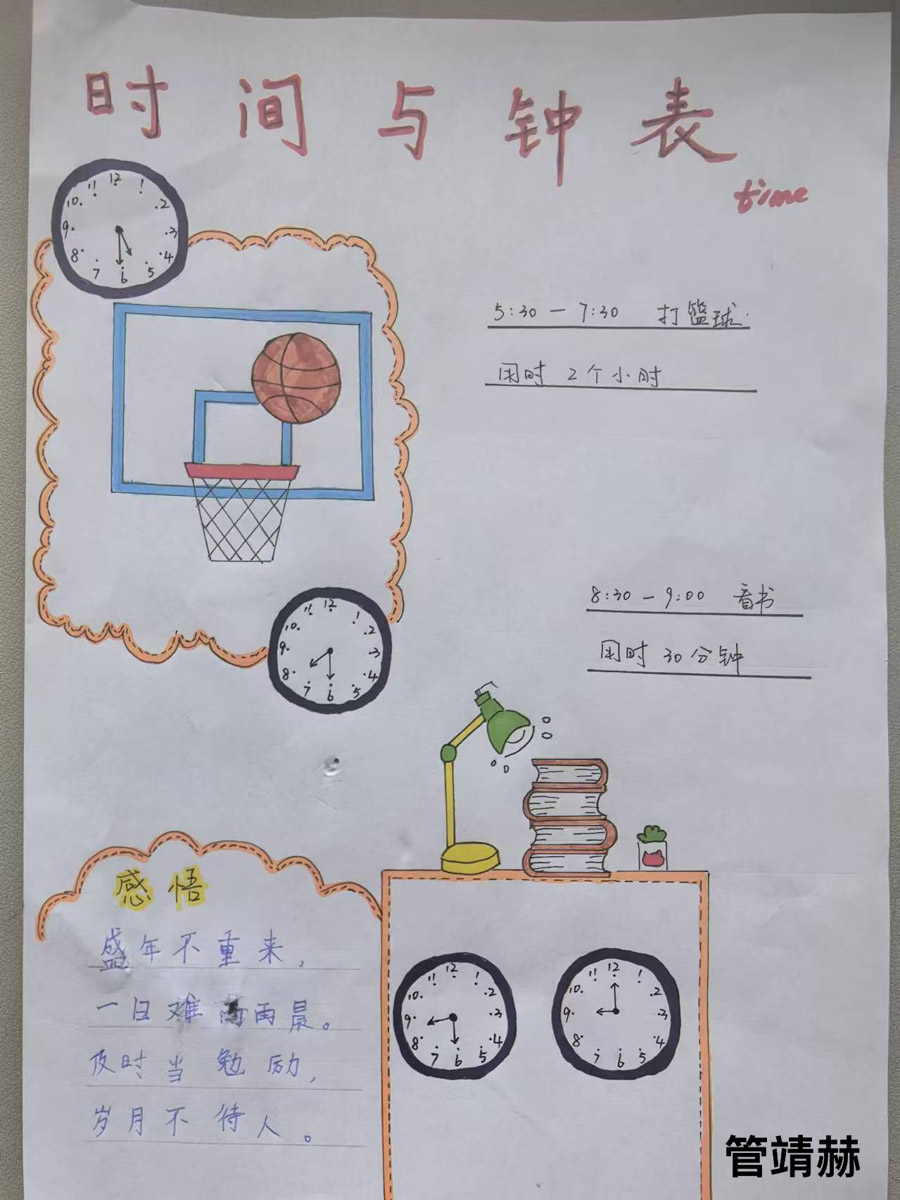 时间与钟表
time
5:30 — 7:30 打篮球.
用时 2个小时
8:30 — 9:00 看书
用时 30分钟
感悟
盛年不重来,
一日难雨晨。
及时当勉励,
岁月不待人。
12 1 2 3 4 5 6 7 8 9 10 11
12 1 2 3 4 5 6 7 8 9 10 11
12 1 2 3 4 5 6 7 8 9 10 11
12 1 2 3 4 5 6 7 8 9 10 11
管靖赫